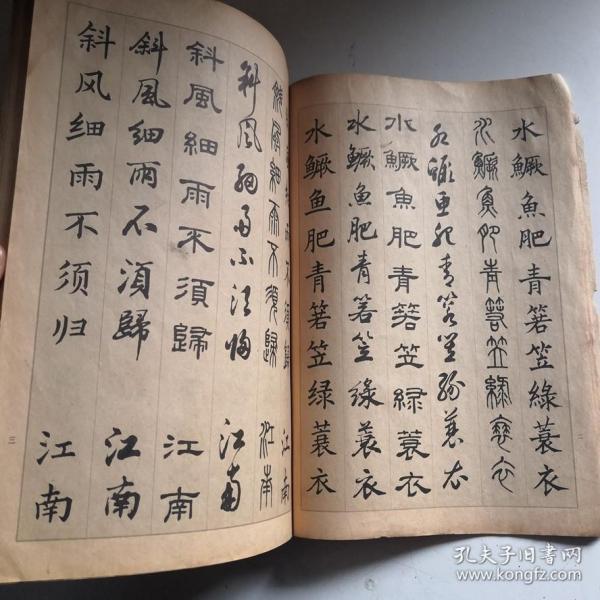 水鱖魚肥青箬笠綠蓑衣
水鱖魚肥青箬笠綠蓑衣
水鱖魚肥青箬笠綠蓑衣
水鱖魚肥青箬笠緑蓑衣
水鱖魚肥青箬笠緑蓑衣
水鳜鱼肥青箬笠绿蓑衣
二
雨不須歸 江南
斜風細雨不須歸 江南
斜風細雨不須歸 江南
斜風細雨不須歸 江南
斜風細雨不須歸 江南
斜风细雨不须归 江南
三
孔夫子旧书网
www.kongfz.com